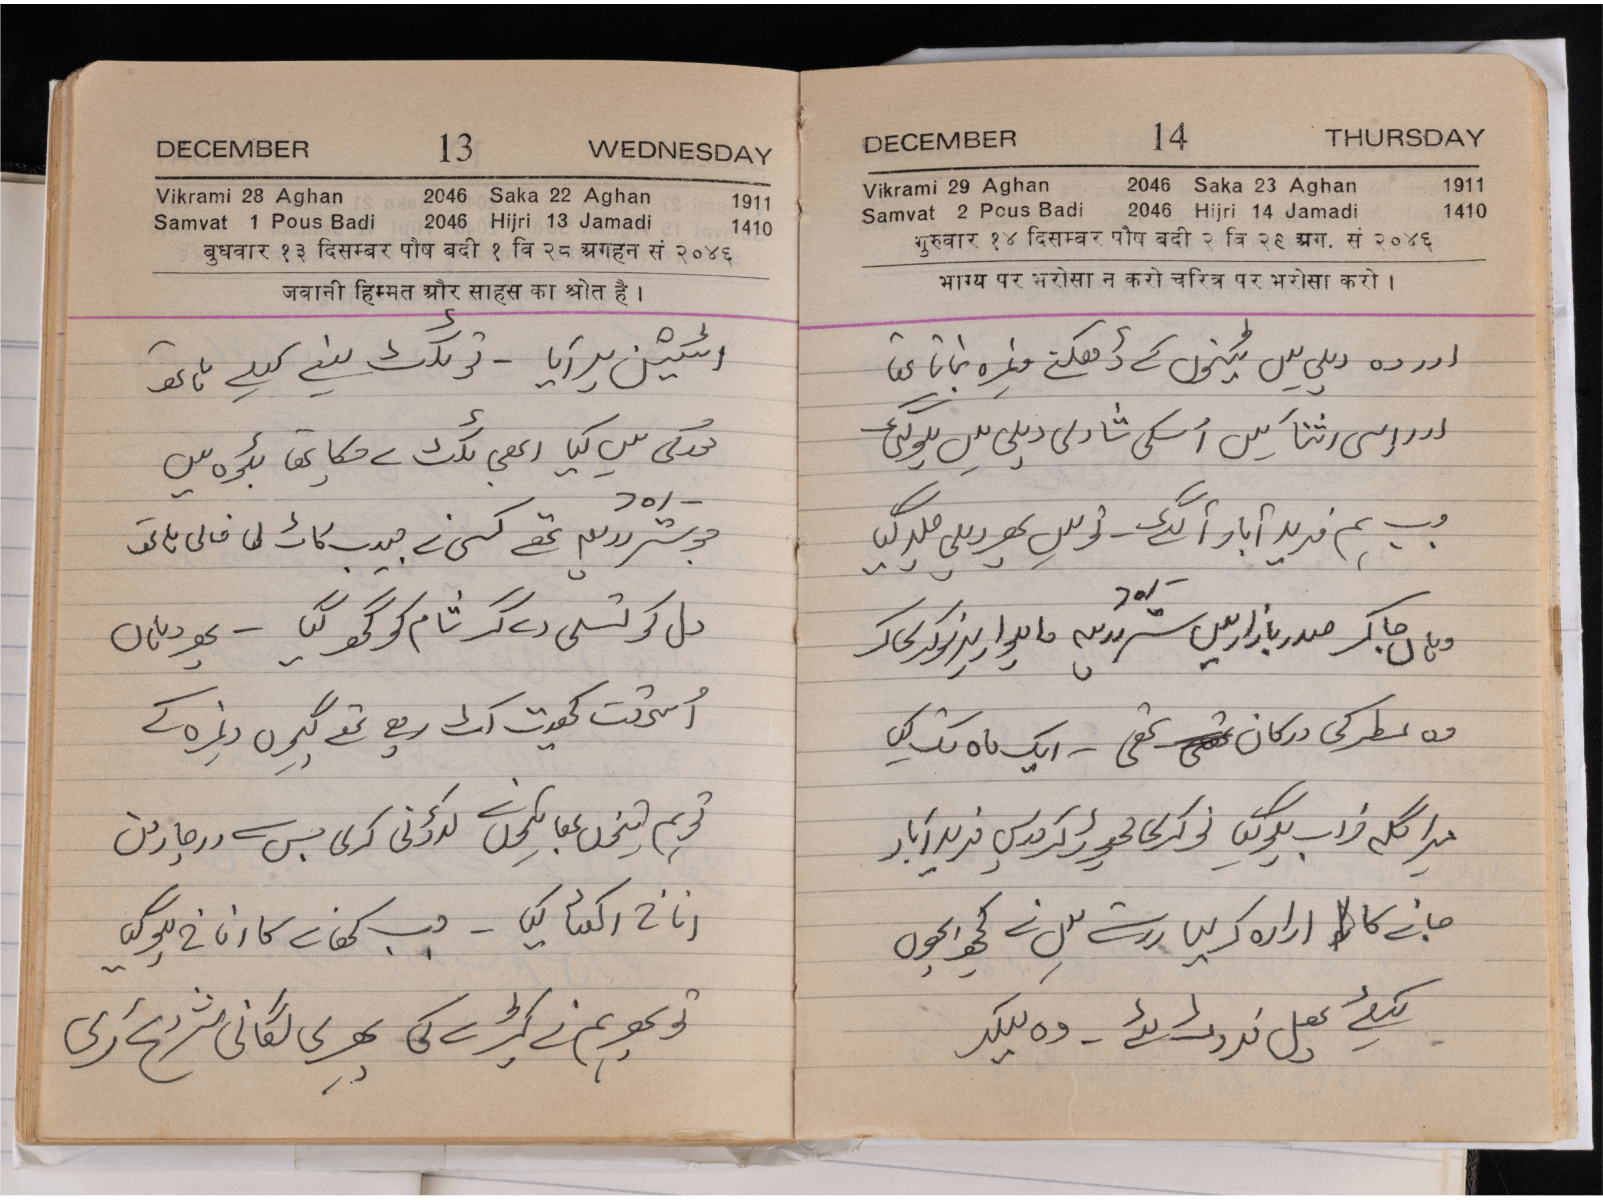 DECEMBER 13 WEDNESDAY
Vikrami 28 Aghan 2046 Saka 22 Aghan 1911
Samvat 1 Pous Badi 2046 Hijri 13 Jamadi 1410
बुधवार १३ दिसम्बर पौष बदी १ वि २८ अगहन सं २०४६
जवानी हिम्मत और साहस का श्रोत है।
اسٹیشن پر آیا - تو ٹکٹ لینے کیلئے ہاتھ
میں گیا ابھی ٹکٹ تھا بٹوہ میں
جو ستر روپیہ تھے کسی نے جیب کاٹ لی خالی ہاتھ
۷۰/-
دل کو تسلی دے کر شام کو گھر گیا - پھر وہاں
اُسوقت کھیت کٹ رہے تھے گیہوں وغیرہ کے
تو ہم تینوں بھائیوں نے کرلی جس سے دو چار من
اناج اکٹھا کیا - جب کھانے کا اناج ہوگیا
تو پھر ہم نے کپڑے کی پھیری لگانی شروع کردی
DECEMBER 14 THURSDAY
Vikrami 29 Aghan 2046 Saka 23 Aghan 1911
Samvat 2 Pous Badi 2046 Hijri 14 Jamadi 1410
गुरुवार १४ दिसम्बर पौष बदी २ वि २९ अग. सं २०४६
भाग्य पर भरोसा न करो चरित्र पर भरोसा करो।
اور وہ دہلی میں ٹینوں کے ڈھکنے وغیرہ بناتا تھا
اور اسی اثنا میں اُسکی شادی دہلی میں ہوگئی
جب ہم فرید آباد آ گئے - تو میں پھر دہلی چلا گیا
۷۰/-
وہاں جا کر صدر بازار میں ستر روپیہ ماہوار پر نوکری کر
وہ عطر کی دوکان تھی - ایک ماہ تک کیا
میرا گلہ خراب ہوگیا نوکری چھوڑ کر واپس فرید آباد
جانے کا ارادہ کرلیا رستے میں نے کچھ بچوں
کیلئے پھل فروٹ لئے - وہ لیکر